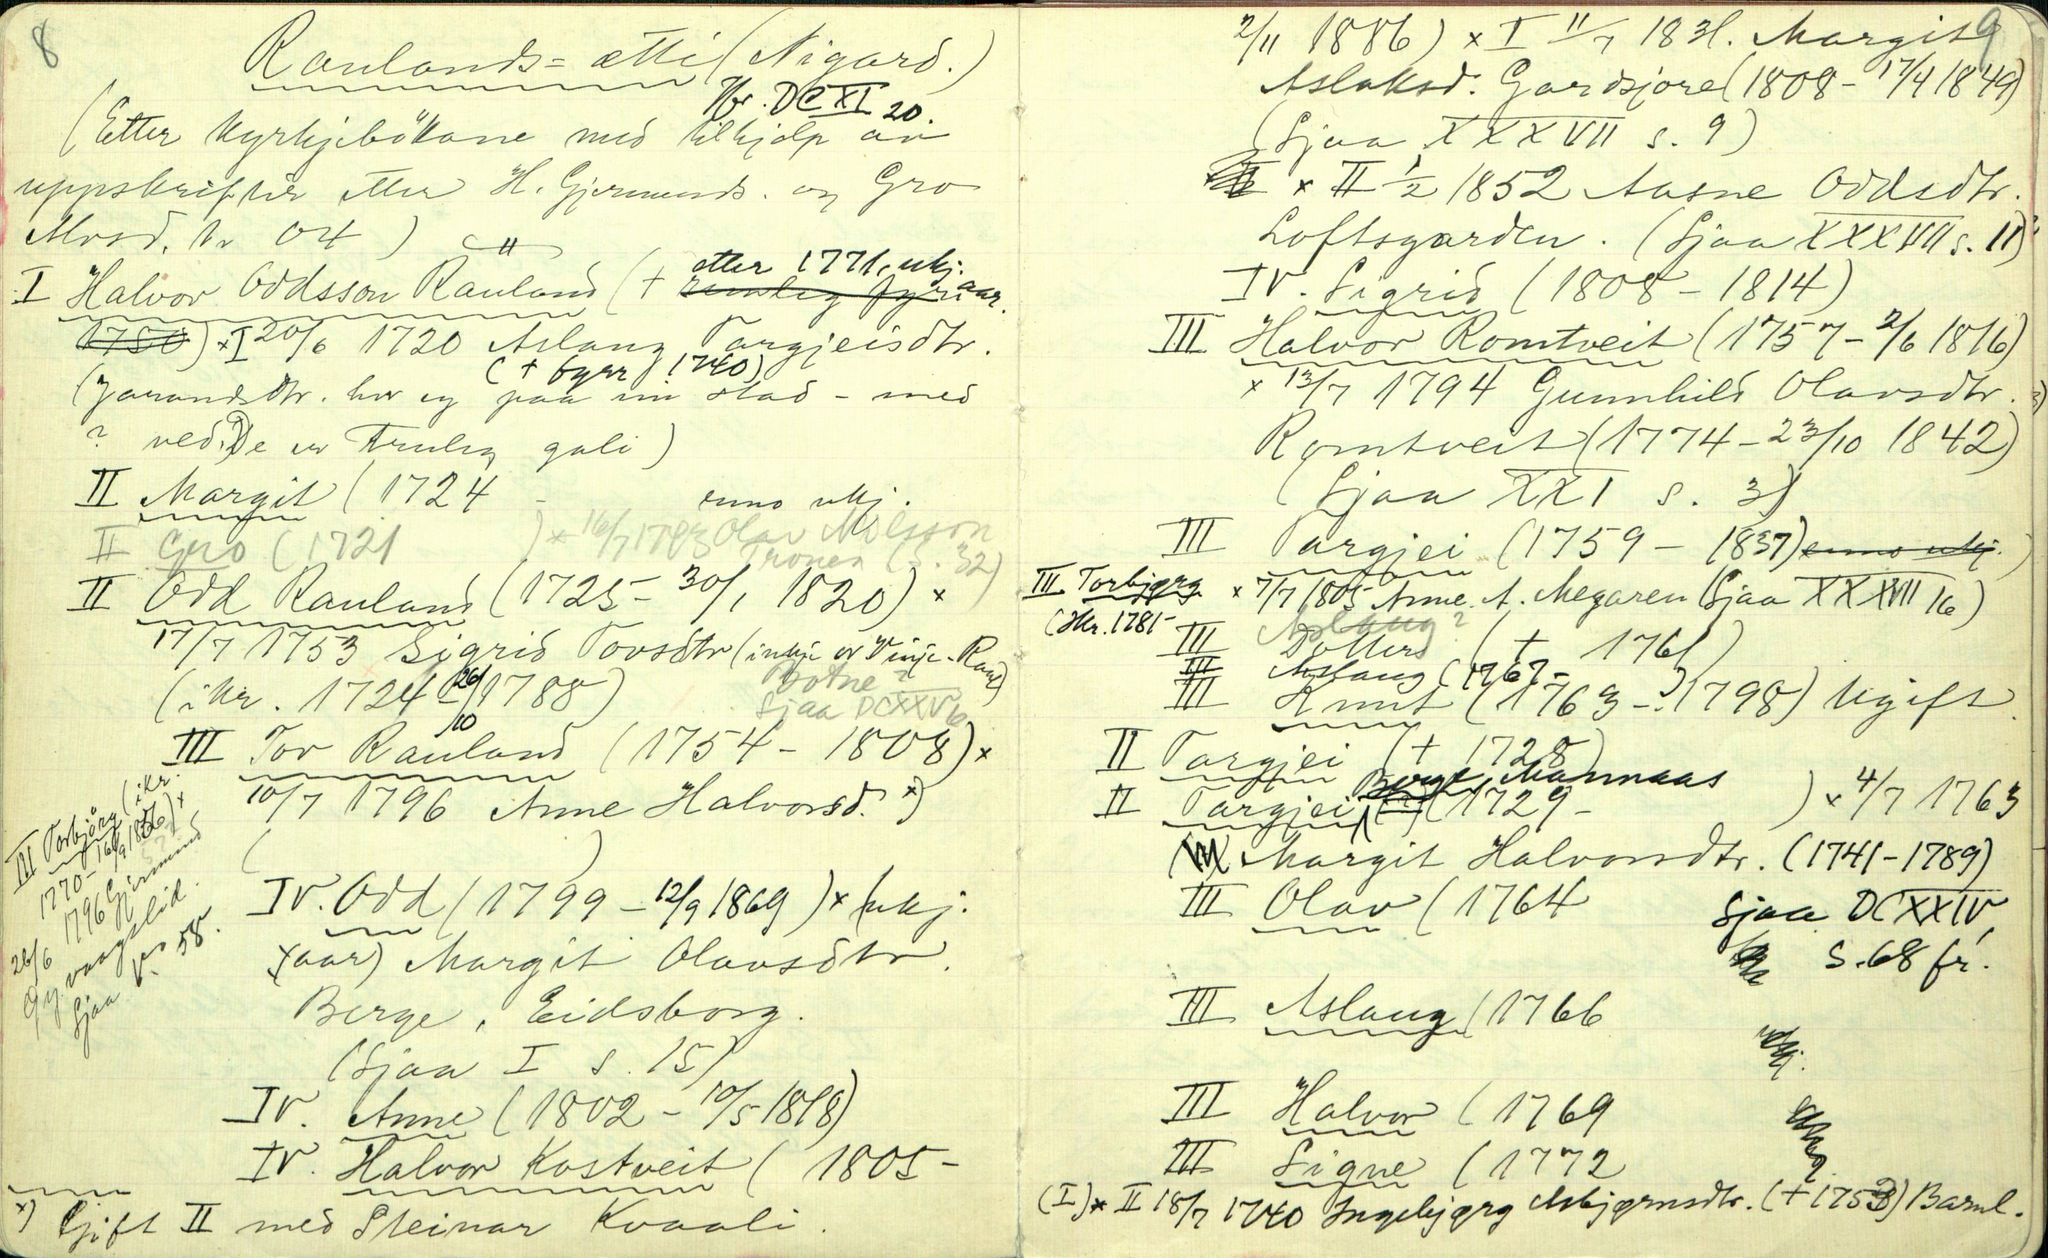 8
Raulands-ætti (Nigard.)
Nr. DCXI 20.
(Etter kyrkjebökane med tilhjelp av
uppskrifter etter H. Gjermunds. og Gro
I Halvor Oddsson Rauland († etter 1771, ukj. aar.
1750) × I 20/6 1720 Aslaug Targjeisdtr.
(† fyrr 1740)
(Jarandsdtr. hev eg paa ein stad - med
? ved. De er truleg gali)
II Margit (1724 - enno ukj.
II Gro (1721 ) × 16/7 1743 Olav Nilsson
Tronen (S. 32)
II Odd Rauland (1725 - 30/1 1820) ×
17/7 1753 Sigrid Tovsdtr (inkje er Vinje-Raul)
(ikr. 1724 - 26/10 1788) Botne?
Sjaa DCXXV 6
III Tor Rauland (1754 - 1808) ×
10/7 1796 Anne Halvorsd. ×)
( )
III Torbjörg (ikr.
1770 - 16/9 1826) ×
26/6 1796 Gjermund
Gj. vaagslid.
Sjaa V s 58.
IV. Odd (1799 - 12/9 1869) × (ukj.
aar) Margit Olavsdtr.
Berge, Eidsborg.
(Sjaa I s. 15)
IV. Anne (1802 - 10/5 1818)
IV. Halvor Kostveit (1805 -
×) Gift II med Steinar Kvaali.
9
2/11 1886) × I 11/7 1831. Margit
Aslaksd. Gardsjore (1808 - 17/4 1849)
(Sjaa XXXVII s. 9)
× II 1/2 1852 Aasne Oddsdtr.
Loftsgarden. (Sjaa XXXVII s. 11)
IV. Sigrid (1808 - 1814)
III Halvor Romtveit (1757 - 2/6 1816)
× 13/7 1794 Gunnhild Olavsdtr.
Romtveit (1774 - 23/10 1842)
(Sjaa XXI s. 3)
III Targjei (1759 - 1837) enno ukj.
× 7/7 1805 Anne A. Megaren (Sjaa XXXVII 16)
III Torbjørg
(Ikr. 1781 -
Aslaug?
III Dotter († 1761)
III Aslaug (1767 -
III Knut (1763 - 1798) Ugift.
II Targjei († 1728)
II Targjei Berge, Mannaas (1729 - ) × 4/7 1763
Margit Halvorsdtr. (1741 - 1789)
III Olav (1764 Sjaa DCXXIV
S. 68 fr.
III Aslaug (1766
ukj.
III Halvor (1769
III Signe (1772
(I) × II 18/7 1740 Ingebjørg Asbjørnsdtr. († 1753) Barnl.